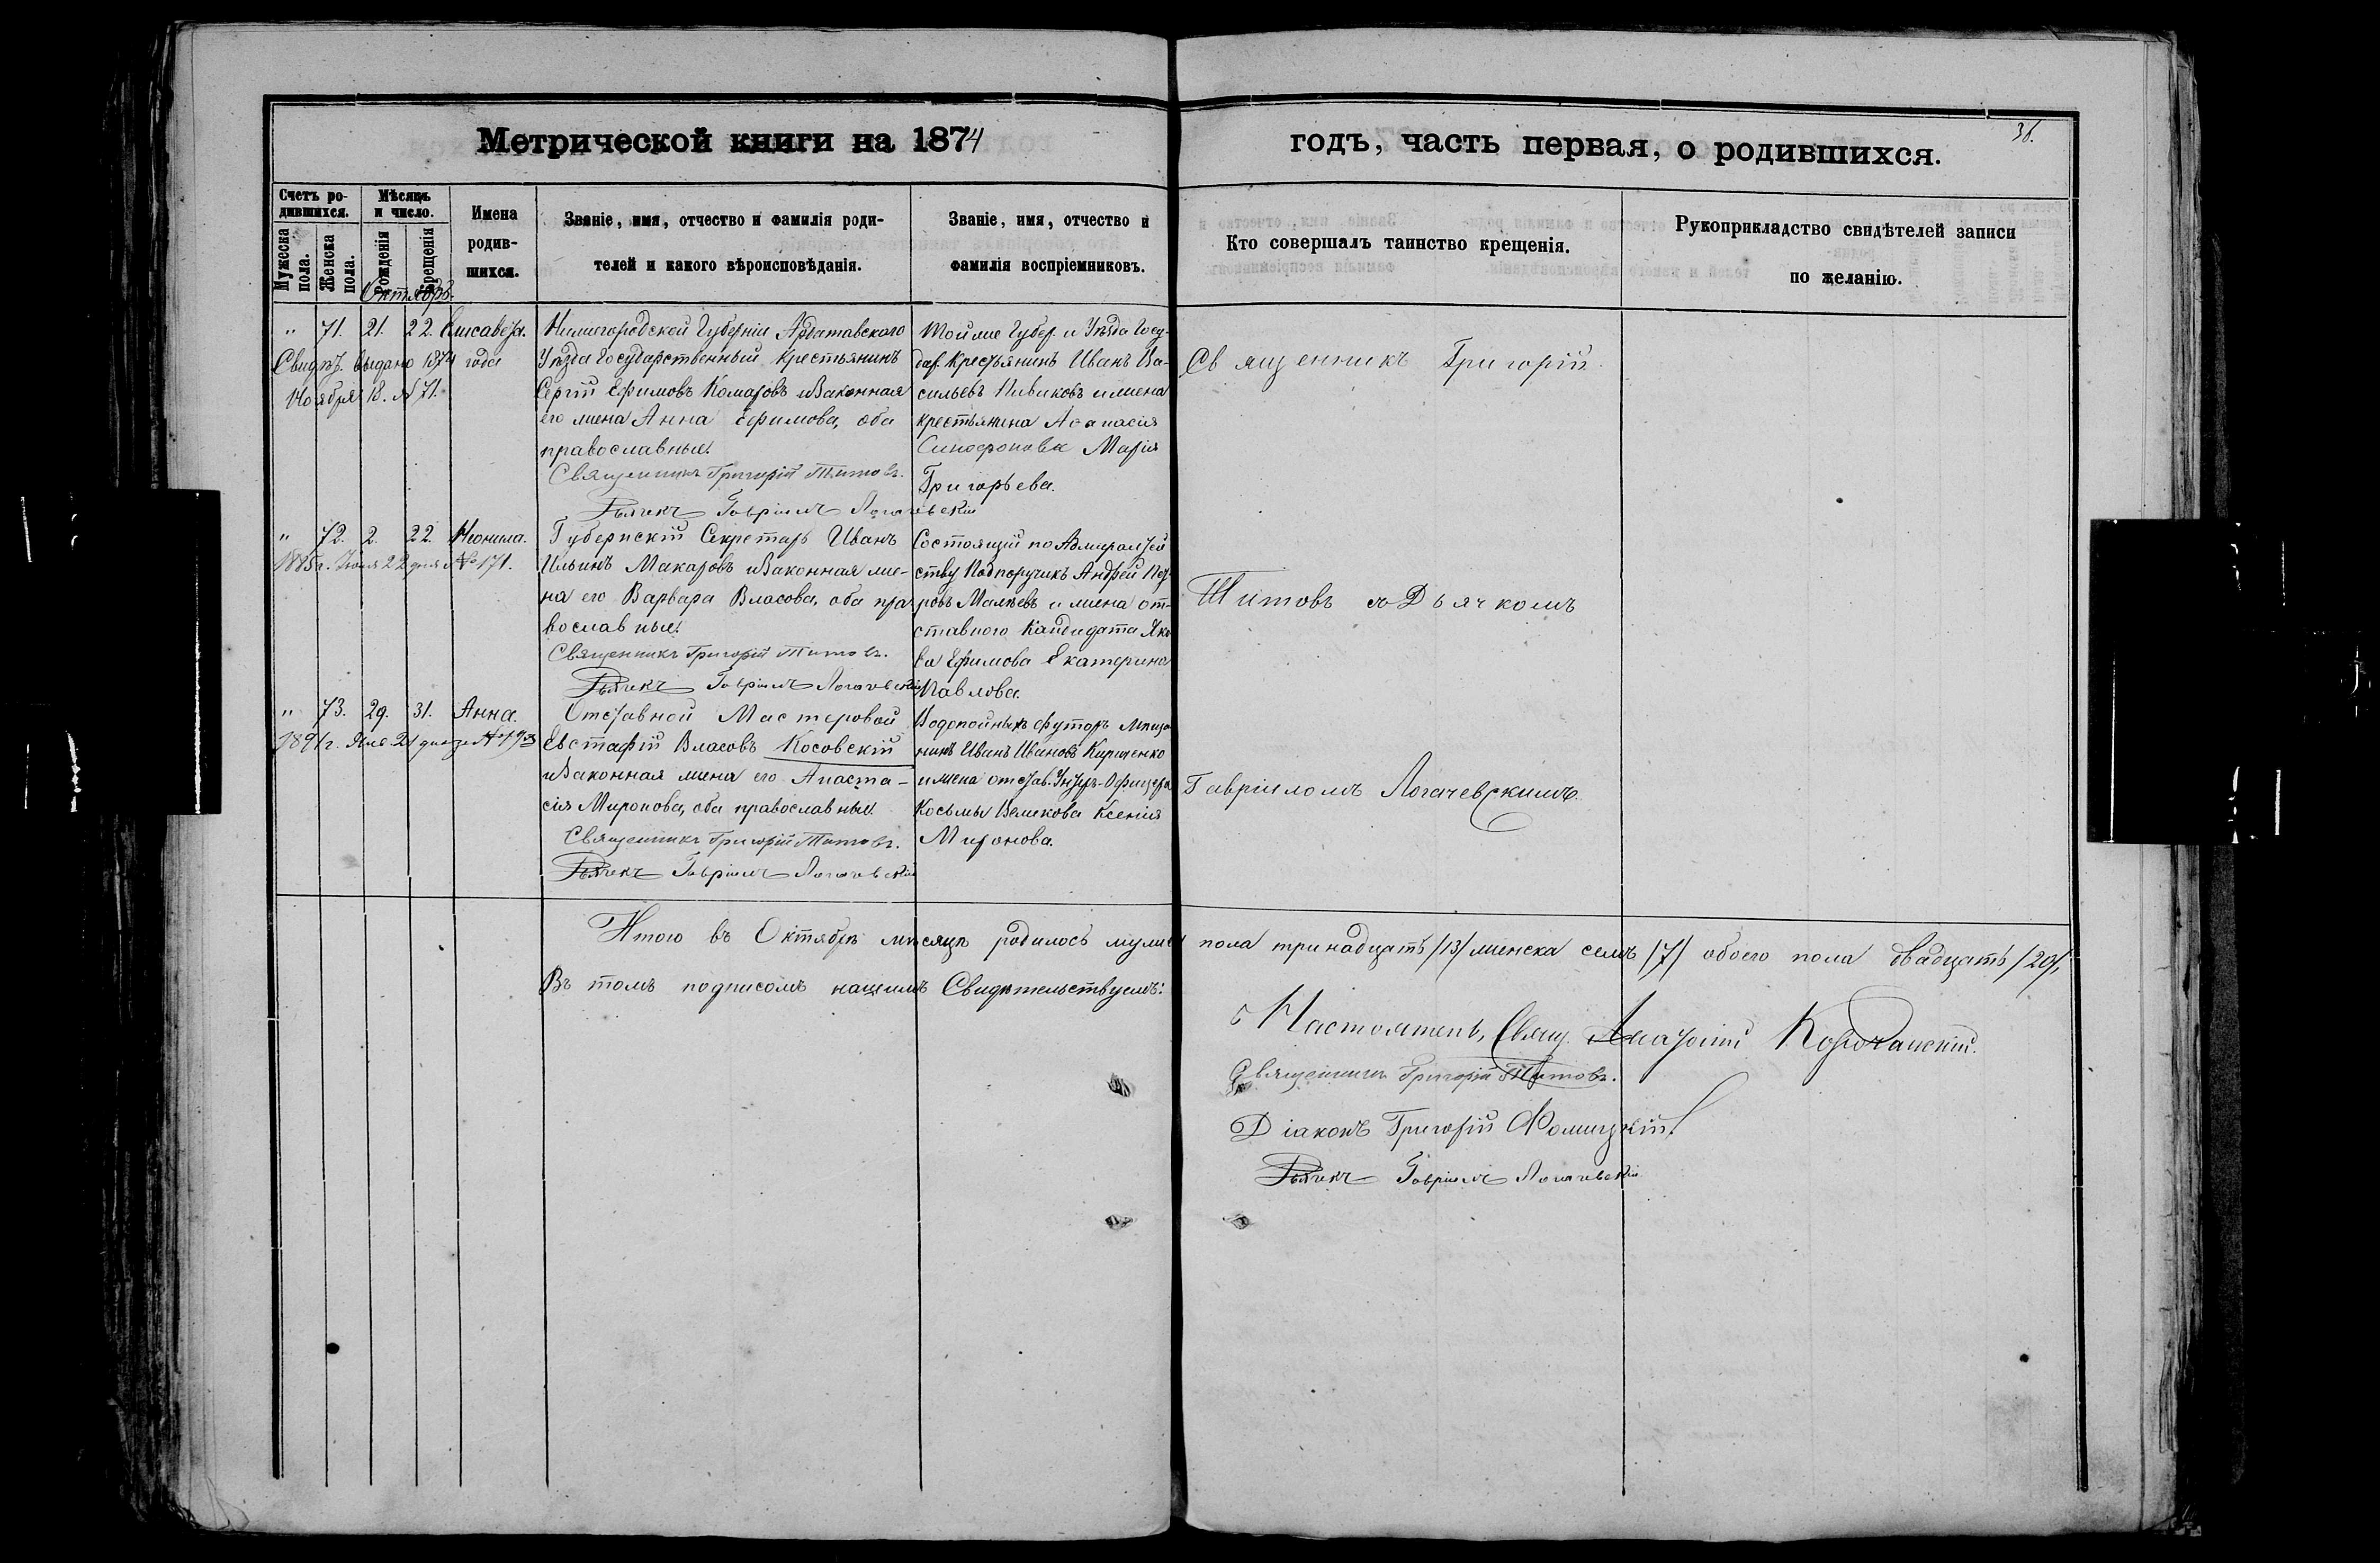 Метрической книги на 1874
годъ, часть первая, о родившихся.
36.
Счетъ ро-
дившихся.
Мужеска
пола.
Женска
пола.
Мѣсяцъ
и число.
Рожденія
Крещенія
Имена
родив-
шихся.
Званіе, имя, отчество и фамилія роди-
телей и какого вѣроисповѣданія.
Званіе, имя, отчество и
фамилія воспріемниковъ.
Кто совершалъ таинство крещенія.
Рукоприкладство свидѣтелей записи
по желанію.
Октябрь.
" 71. 21. 22. Елисавета.
Свидѣт. выдано 1874 года
Ноября 18. № 71.
Нижегородской Губерніи Ардатавского
Уѣзда Государственный крестьянинъ
Сергій Ефимовъ Комаровъ и законная
его жена Анна Ефимова, оба
православные.
Священникъ Григорій Титовъ.
Дьячекъ Гавріилъ Логачевскій
Той же Губер. и Уѣзда Госу-
дар. Крестьянинъ Иванъ Ва-
сильевъ и жена
крестьянина Аѳанасія
Марія
Григорьева.
" 72. 2. 22. Неонила.
1885 г. Іюня 22 дня № 171.
Губернскій Секретарь Иванъ
Ильинъ Макаровъ и законная же-
на его Варвара Власова, оба пра-
вославные.
Священникъ Григорій Титовъ.
Дьячекъ Гавріилъ Логачевскій
Состоящій по Адмиралтей
ству Подпоручикъ Андрей Пет-
ровъ и жена от-
ставного Кандидата Яко
ва Ефимова Екатерина
Павлова.
" 73. 29. 31. Анна.
1891 г. Янв. 21 дня за №
Отставной Мастеровой
Евстафій Власовъ Косовскій
и законная жена его Анаста-
сія Миронова, оба православные.
Священникъ Григорій Титовъ.
Дьячекъ Гавріилъ Логачевскій
Водопойныхъ футоръ мѣща-
нинъ Иванъ Ивановъ Кириченко
и жена отстав. Унтеръ-Офицера
Косьмы Ксенія
Миронова.
Священникъ Григорій
Титовъ съ Дьячкомъ
Гавріиломъ Логачевскимъ.
Итого въ Октябрѣ мѣсяцѣ родилось мужеск пола тринадцать /13/ женска семь /7/ обоего пола двадцать /20/.
Въ томъ подписомъ нашимъ Свидѣтельствуемъ:
Настоятель, Свящ. Корочанскій.
Священникъ Григорій Титовъ.
Діаконъ Григорій Фомицкій
Дьячекъ Гавріилъ Логачевскій